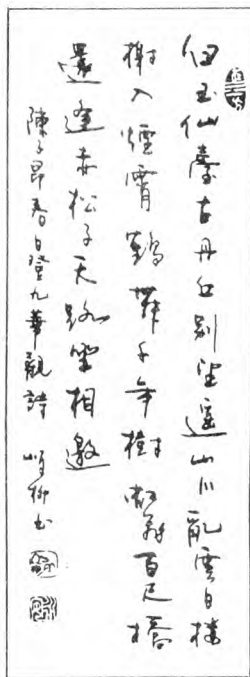 玉仙臺古丹丘別望遙山川亂雲日樓
榭入煙霄鶴舞千年樹虹飛百尺橋
還逢赤松子天路坐相邀
陳子昂春日登九華觀詩 柳书